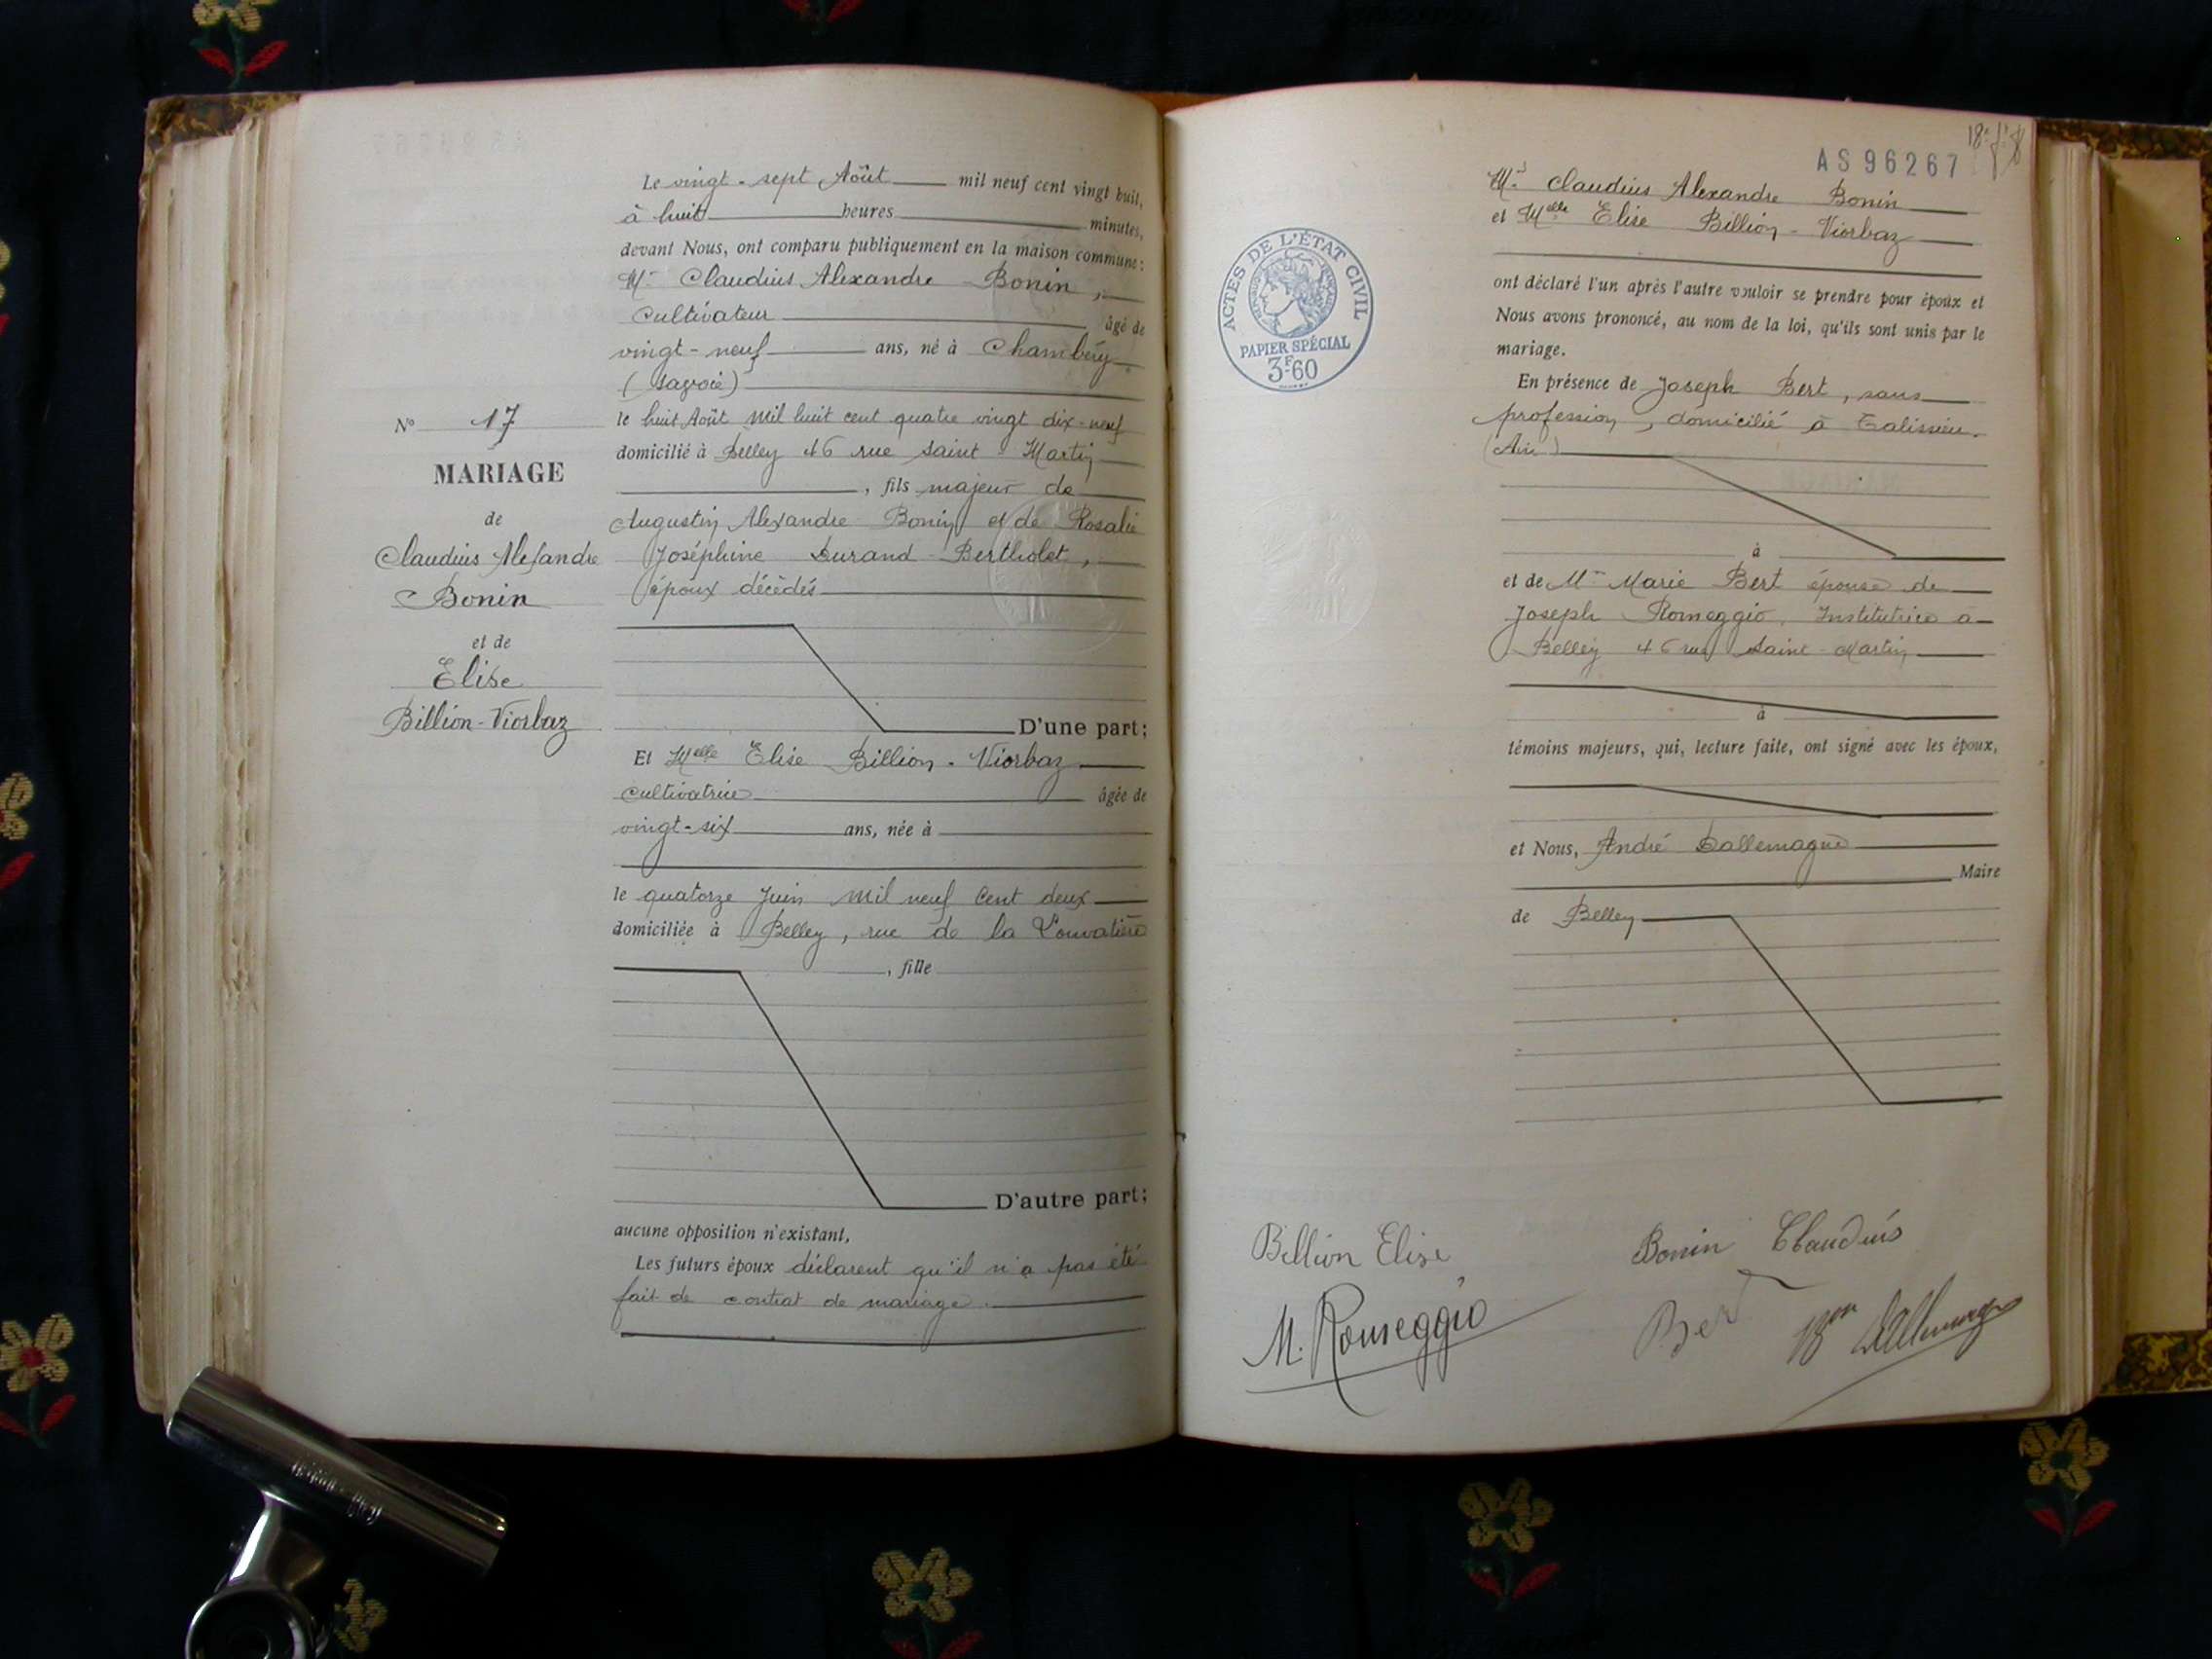 Le vingt-sept Août mil neuf cent vingt huit,
à huit heures minutes,
devant Nous, ont comparu publiquement en la maison commune:
Mr Claudius Alexandre Bonin,
cultivateur âgé de
vingt-neuf ans, né à Chambéry
(Savoie)
le huit Août mil huit cent quatre vingt dix-neuf
domicilié à Belley 46 rue Saint-Martin
, fils majeur de
Augustin Alexandre Bonin et de Rosalie
Joséphine Durand-Bertholet,
époux décédés
D'une part;
Et Melle Elise Billion-Viorbaz
cultivatrice âgée de
vingt-six ans, née à
le quatorze Juin mil neuf cent deux
domiciliée à Belley, rue de la Louvatière
, fille
D'autre part;
aucune opposition n'existant,
Les futurs époux déclarent qu'il n'a pas été
fait de contrat de mariage.
No 17
MARIAGE
de
Claudius Alexandre
Bonin
et de
Elise
Billion-Viorbaz
AS96267
Mr Claudius Alexandre Bonin
et Melle Elise Billion-Viorbaz
ACTES DE L'ÉTAT CIVIL
PAPIER SPÉCIAL
3F60
ont déclaré l'un après l'autre vouloir se prendre pour époux et
Nous avons prononcé, au nom de la loi, qu'ils sont unis par le
mariage.
En présence de Joseph Bert, sans
profession, domicilié à Talissieu.
(Ain)
à
et de Me Marie Bert épouse de
Joseph Romeggio, Institutrice à
Belley 46 rue Saint-Martin
à
témoins majeurs, qui, lecture faite, ont signé avec les époux,
et Nous, André Dallemagne
Maire
de Belley
Billion Elise
Bonin Claudius
M. Romeggio
Bert
Bon Dallemagne